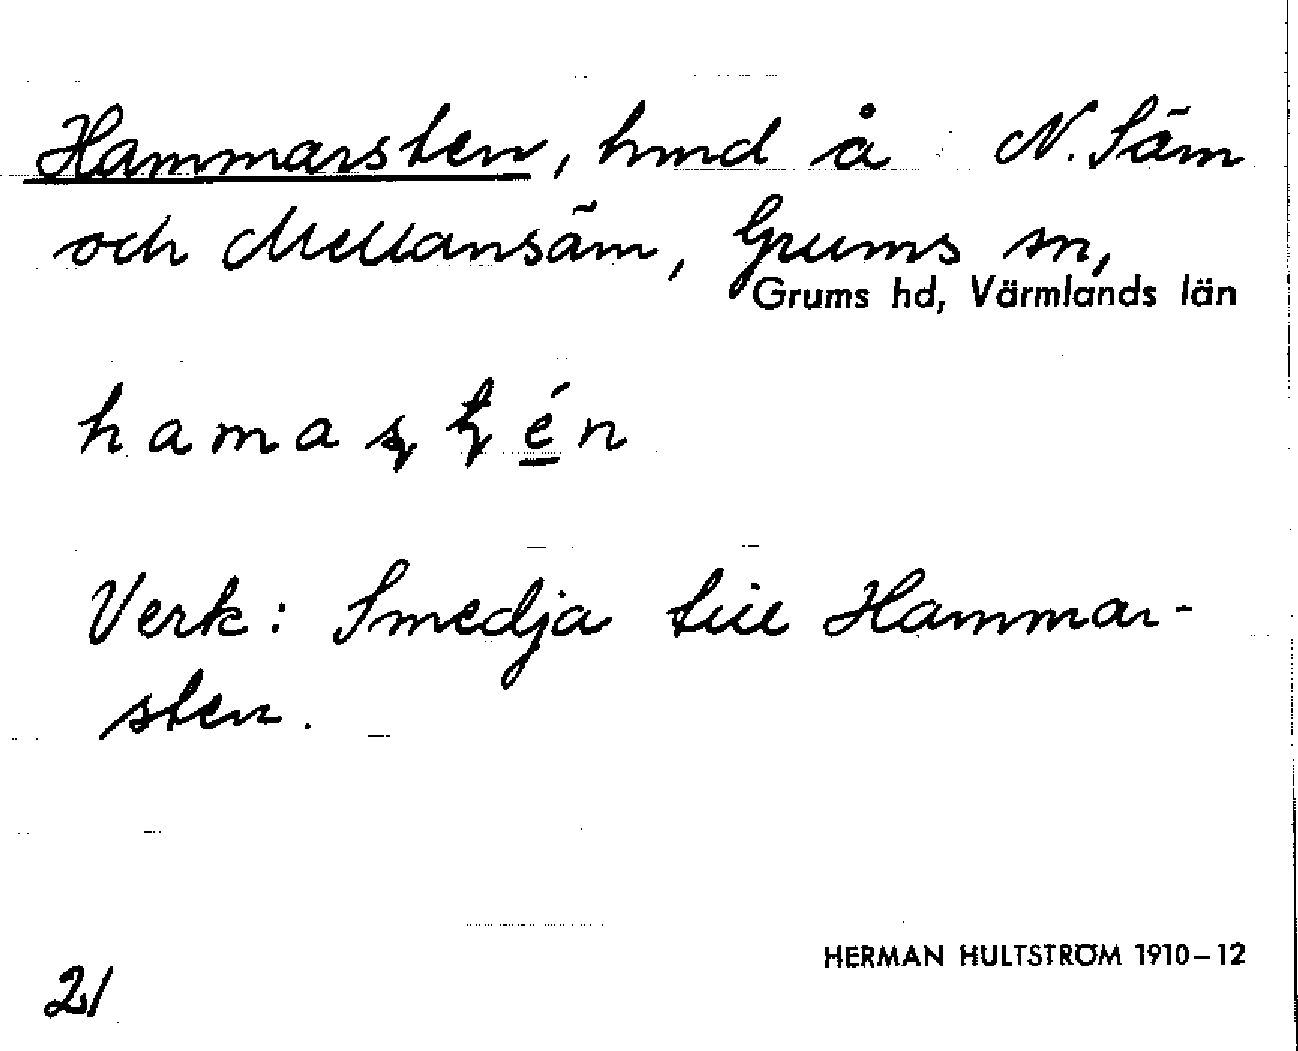 Hammarsten, hmd å N. Säm
och Mellansäm, Grums sn,
Grums hd, Värmlands län
hamaʂʈén
Verk: Smedja till Hammar-
sten.
HERMAN HULTSTRÖM 1910–12
21